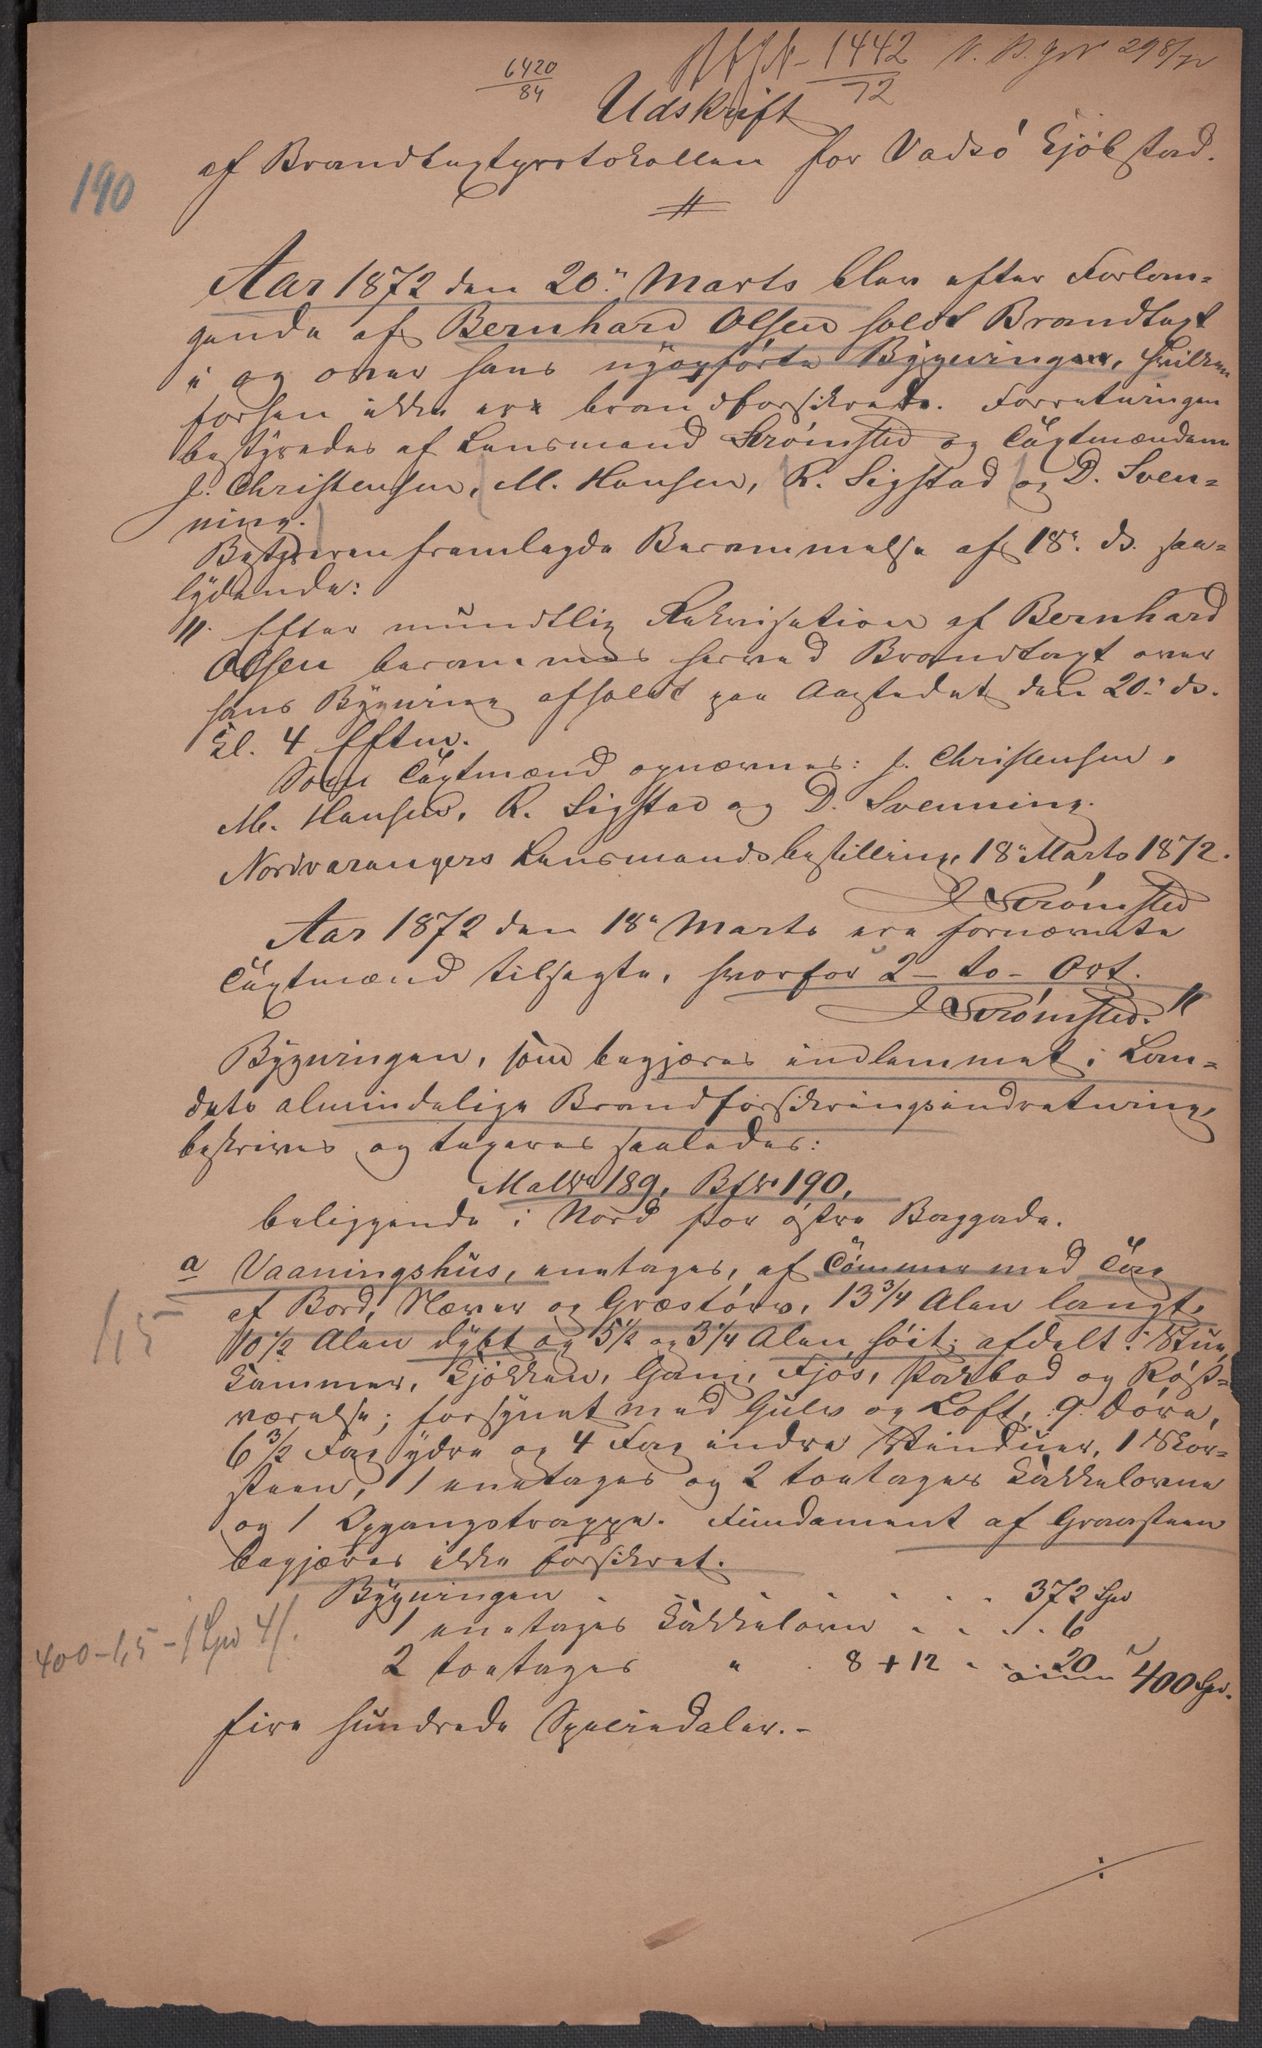 1442
72
298/72
6420
84
Udskrift
af Brandtaxtprotokollen for Vadsö Kjöbstad.
190
Aar 1872 den 20" Marts blev efter Forlan-
gende af Bernhard Olsen holdt Brandtaxt
i og over hans nyopförte Bygninger, hvilken
forhen ikke ere brandforsikrede. Forretningen
bestyredes af Lensmand Strömsted og Taxtmændene
J. Christensen, M. Hansen, R. Sigstad og D. Sven-
ning.
Bestyreren fremlagde Berammelse af 18" ds. saa-
lydende:
". Efter mundtlig Rekvisition af Bernhard
Olsen berammes herved Brandtaxt over
hans Bygning afholdt paa Aastedet den 20" ds.
Kl. 4 Efterm.
Som Taxtmænd opnævnes: J. Christensen,
M. Hansen, R. Sigstad og D. Svenning.
Nordvarangers Lensmandsbestilling, 18" Marts 1872.
J Strömsted
Aar 1872 den 18" Marts ere fornævnte
Taxtmænd tilsagte, hvorfor 2 - to - Ort.
J Strömsted. "
Bygningen, som begjæres indlemmet i Lan-
dets almindelige Brandforsikringsindretning,
beskrives og taxeres saaledes:
Mat№ 189, Bf№ 190,
beliggende i Nord for östre Baggade.
a Vaaningshus, enetages, af Tömmer med Tag
1,5
af Bord, Næver og Græstörv, 13 3/4 Alen langt,
10 1/2 Alen dybt og 5 1/2 og 3 1/4 Alen höit; afdelt i Stue,
Kammer, Kjökken, Gam, Fjös, Parbod og Rögt-
værelse; forsynet med Gulv og Loft, 9 Döre,
6 3/2 Fag ydre og 4 Fag indre Vinduer, 1 Skor-
steen, 1 enetages og 2 toetages Kakkelovne
og 1 Opgangstrappe. Fundament af Graasteen
begjæres ikke forsikret.
Bygningen . . . . . 372 Spd
1 enetages Kakkelovn . . . . 6
400 - 1,5 - 1 Spd
2 toetages " . 8 + 12 . . . 20 400 Spd.
fire hundrede Speciedaler. -